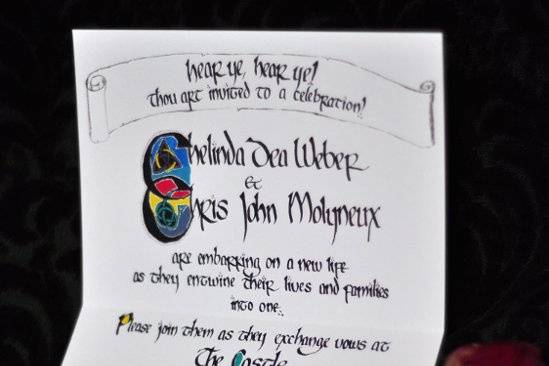 hear ye, hear ye!
thou art invited to a celebration!
Chelinda Dea Weber
&
Chris John Molyneux
are embarking on a new life
as they entwine their lives and families
into one.
Please join them as they exchange vows at
The Castle